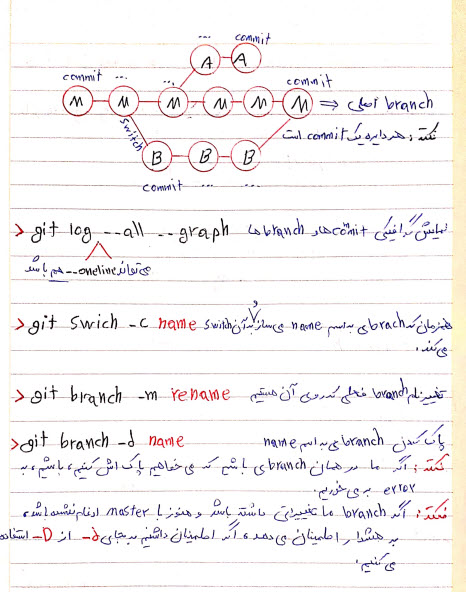 ... commit
A A
commit ... ... commit
M M M M M M ⇒ branch اصلی
switch
نکته: هر دایره یک commit است
B B B
commit ... ...
> git log --all --graph نمایش گرافیکی commit ها و branch ها
می‌تواند --oneline هم باشد
> git swich -c name همزمان که branch ی به اسم name می‌سازد و به آن switch
می‌کند.
> git branch -m rename تغییر نام branch فعلی که روی آن هستیم
> git branch -d name پاک کردن branch ی به اسم name
نکته: اگر ما در همان branch ی باشیم که می‌خواهیم پاک اش کنیم، باشیم، به
error بر می‌خوریم.
نکته: اگر branch ما تغییراتی داشته باشد و هنوز با master ادغام نشده باشد،
هشدار اطمینان می‌دهد، اگر اطمینان داشتیم به جای -d از -D استفاده
می‌کنیم.